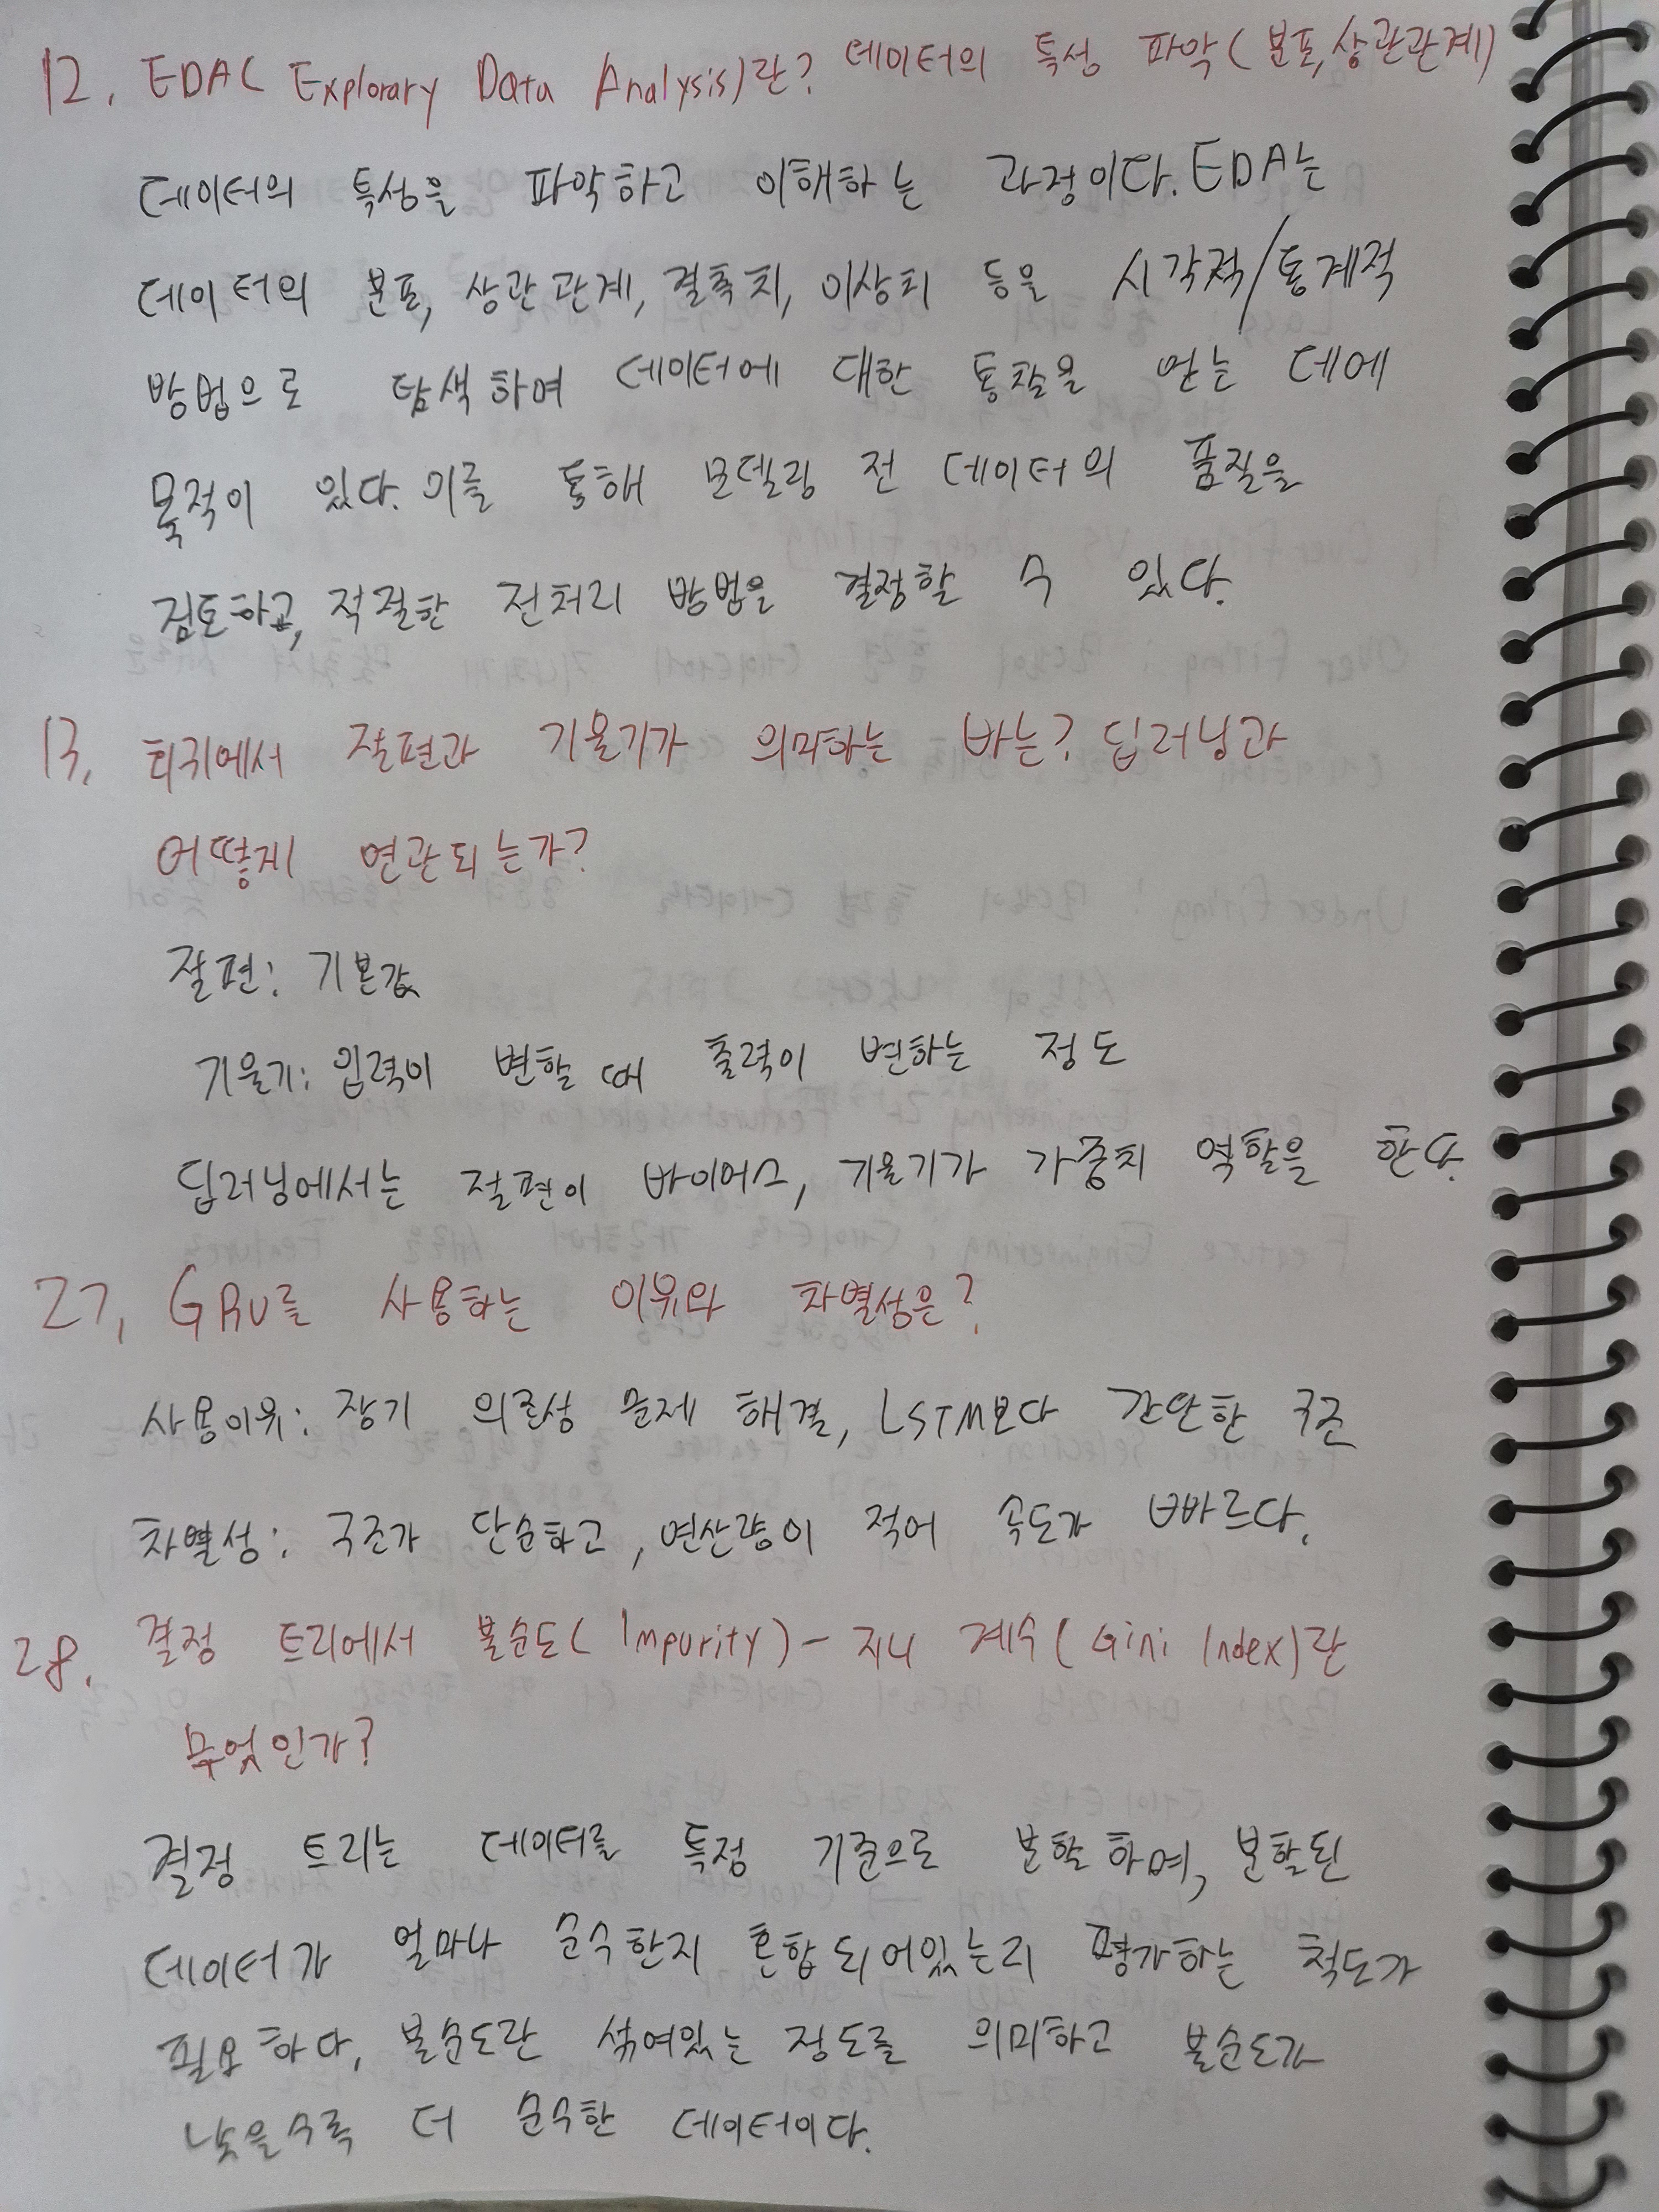 12. EDA( Explorary Data Analysis)란? 데이터의 특성 파악(분포,상관관계)
데이터의 특성을 파악하고 이해하는 과정이다. EDA는
데이터의 분포, 상관관계, 결측치, 이상치 등을 시각적/통계적
방법으로 탐색하여 데이터에 대한 통찰을 얻는 데에
목적이 있다. 이를 통해 모델링 전 데이터의 품질을
검토하고, 적절한 전처리 방법을 결정할 수 있다.
13. 회귀에서 절편과 기울기가 의미하는 바는? 딥러닝과
어떻게 연관되는가?
절편: 기본값
기울기: 입력이 변할 때 출력이 변하는 정도
딥러닝에서는 절편이 바이어스, 기울기가 가중치 역할을 한다.
27. GRU를 사용하는 이유와 차별성은?
사용이유: 장기 의존성 문제 해결, LSTM보다 간단한 구조
차별성: 구조가 단순하고, 연산량이 적어 속도가 빠르다.
28. 결정 트리에서 불순도( Impurity) - 지니 계수( Gini Index)란
무엇인가?
결정 트리는 데이터를 특정 기준으로 분할하며, 분할된
데이터가 얼마나 순수한지 혼합되어있는지 평가하는 척도가
필요하다. 불순도란 섞여있는 정도를 의미하고 불순도가
낮을수록 더 순수한 데이터이다.